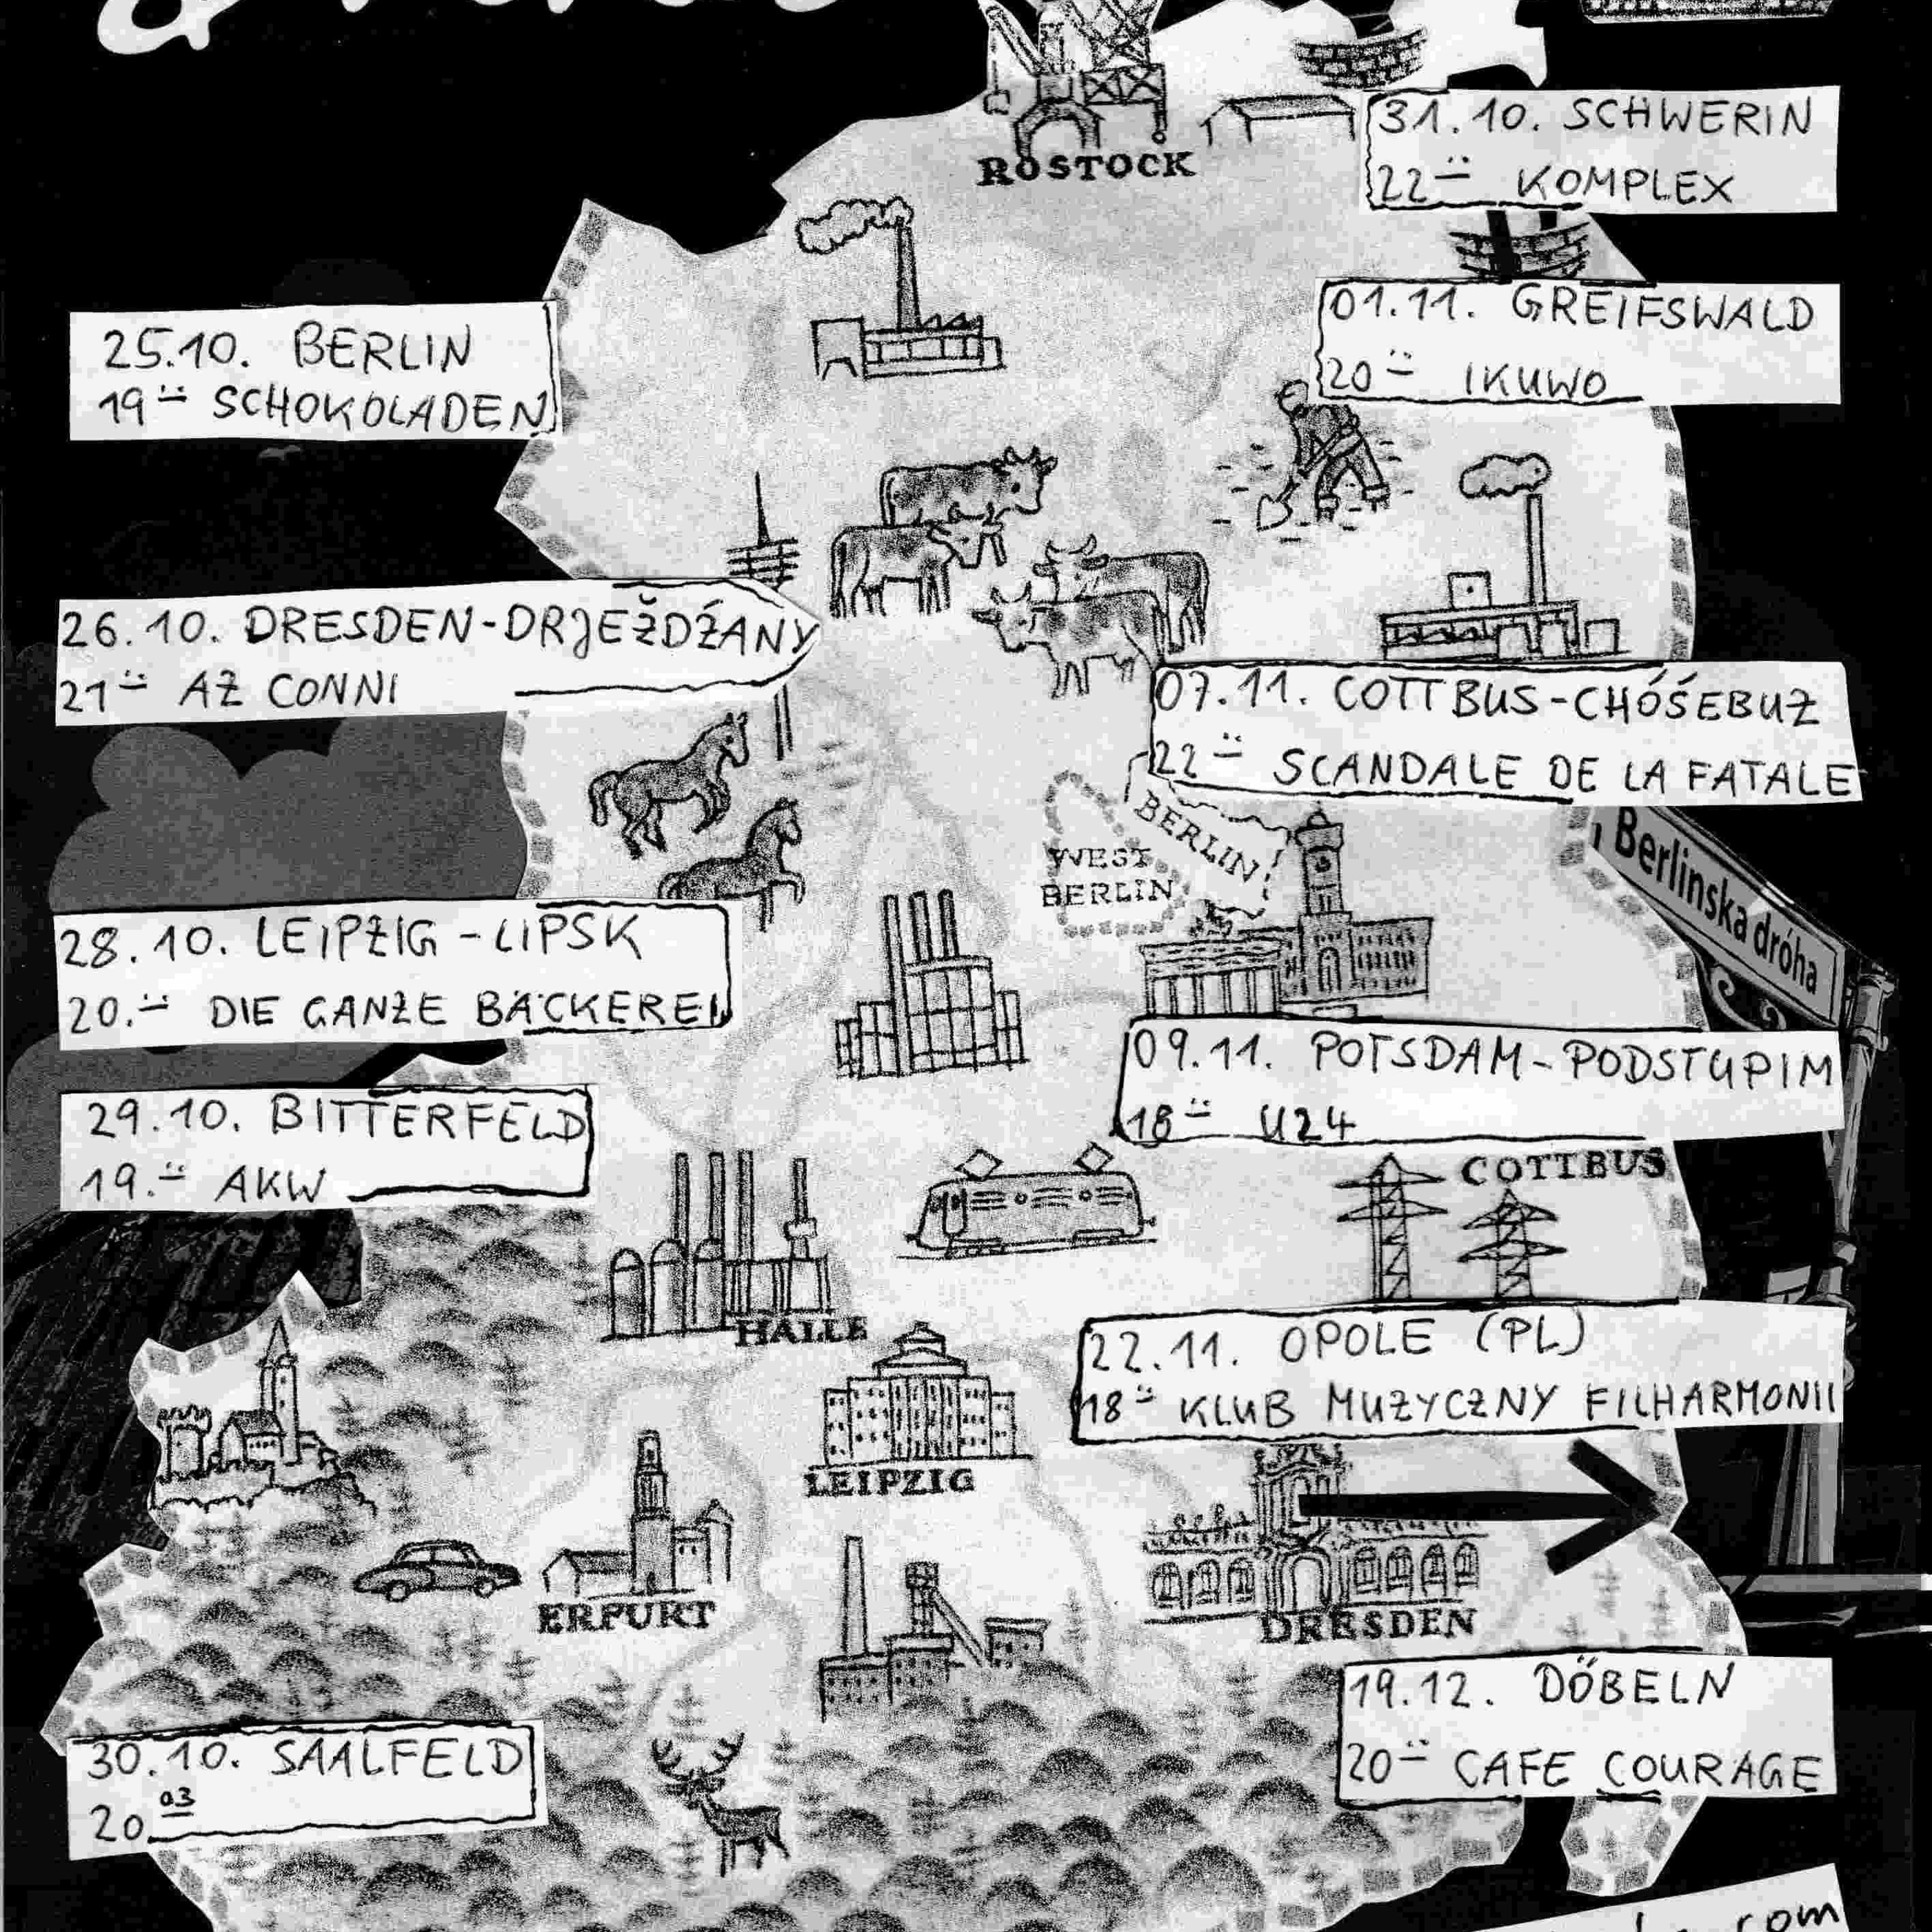 ROSTOCK
31.10. SCHWERIN
22:– KOMPLEX
01.11. GREIFSWALD
20:– IKUWO
25.10. BERLIN
19:– SCHOKOLADEN
26.10. DRESDEN-DRJEŽDŹANY
21:– AZ CONNI
07.11. COTTBUS-CHÓŚEBUZ
22:– SCANDALE DE LA FATALE
BERLIN
WEST
BERLIN
Berlinska dróha
28.10. LEIPZIG-LIPSK
20.:– DIE GANZE BÄCKEREI
09.11. POTSDAM-PODSTUPIM
18:– U24
29.10. BITTERFELD
19.:– AKW
COTTBUS
HALLE
22.11. OPOLE (PL)
18:– KLUB MUZYCZNY FILHARMONII
LEIPZIG
ERFURT
DRESDEN
19.12. DÖBELN
20:– CAFE COURAGE
30.10. SAALFELD
20 03